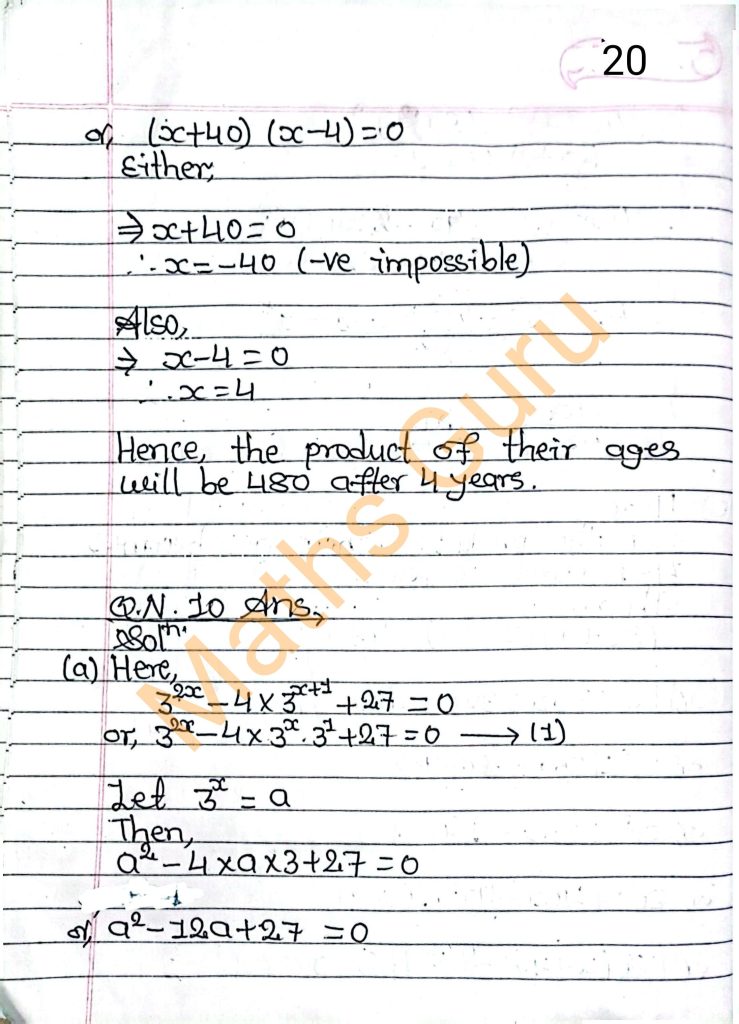 20
or, (x+40) (x-4) = 0
Either,
⇒ x+40 = 0
∴ x = -40 (-ve impossible)
Also,
⇒ x-4 = 0
∴ x = 4
Hence, the product of their ages
will be 480 after 4 years.
Q.N. 10 Ans.
Solⁿ.
(a) Here,
3²ˣ - 4 × 3ˣ⁺¹ + 27 = 0
or, 3²ˣ - 4 × 3ˣ . 3¹ + 27 = 0 ⟶ (1)
Let 3ˣ = a
Then,
a² - 4 × a × 3 + 27 = 0
or, a² - 12a + 27 = 0
Maths Guru